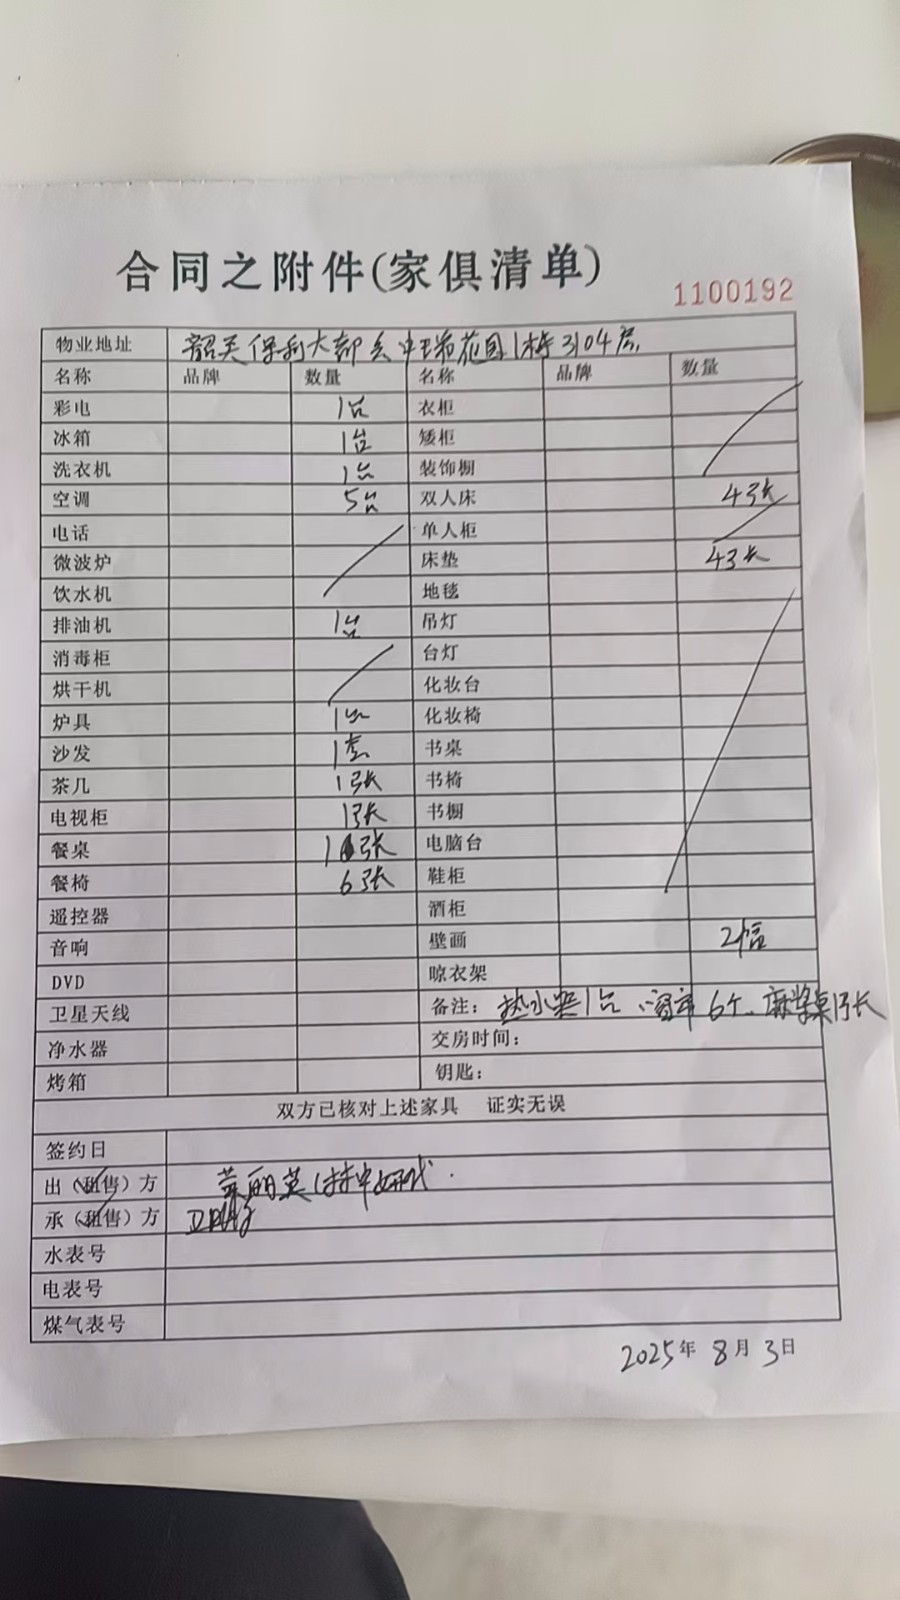 合同之附件(家俱清单)
1100192
物业地址 韶关保利大都会中瑞花园1栋3104房
名称 品牌 数量 名称 品牌 数量
彩电 1台 衣柜
冰箱 1台 矮柜
洗衣机 1台 装饰橱
空调 5台 双人床 4张
电话 单人柜
微波炉 床垫 4张
饮水机 地毯
排油机 1台 吊灯
消毒柜 台灯
烘干机 化妆台
炉具 1台 化妆椅
沙发 1套 书桌
茶几 1张 书椅
电视柜 1张 书橱
餐桌 1张 电脑台
餐椅 6张 鞋柜
遥控器 酒柜
音响 壁画 2幅
DVD 晾衣架
卫星天线 备注：热水器1台、窗帘6个、麻将桌1张
净水器 交房时间：
烤箱 钥匙：
双方已核对上述家具 证实无误
签约日
出（租售）方
承（租售）方
水表号
电表号
煤气表号
2025年8月3日